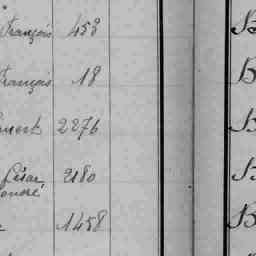 François 458 B
François 18 B
2276 B
César 2180 B
1458 B